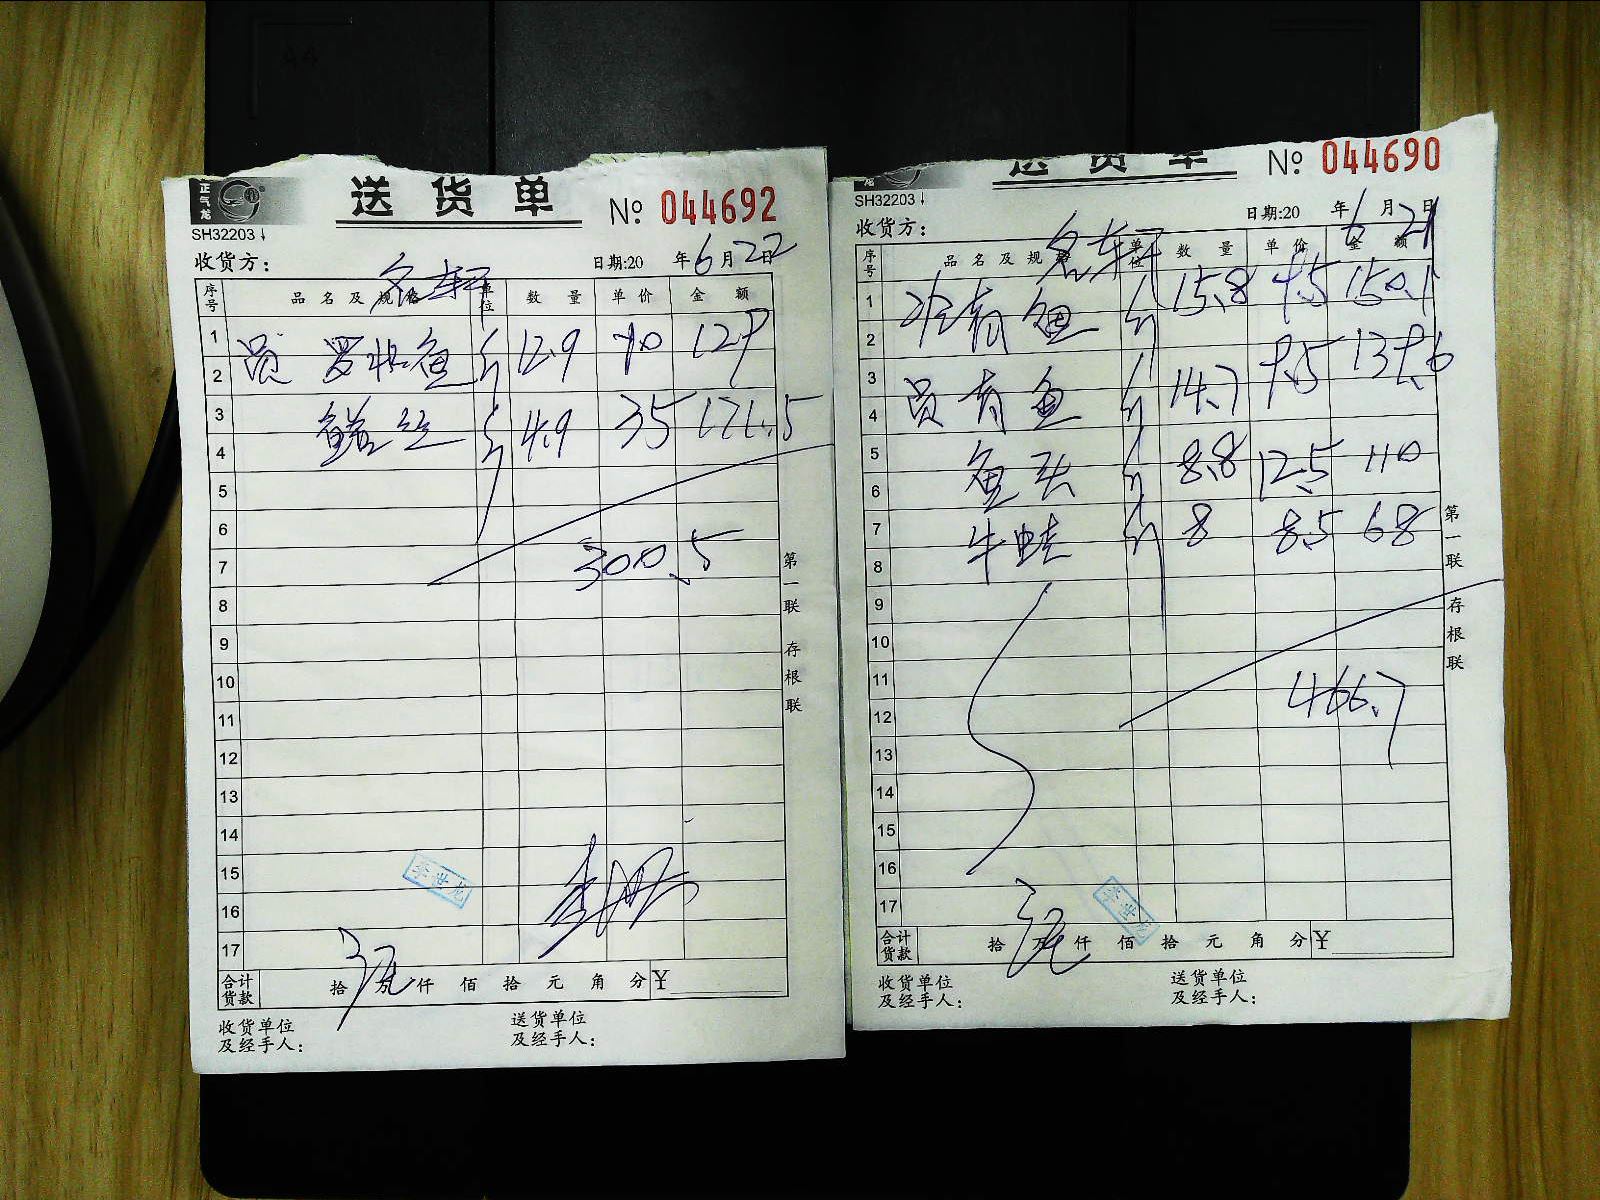 正气龙
SH32203
送货单
№ 044692
收货方:
名轩
日期:20 年6月22日
序号 品名及规格 单位 数量 单价 金额
1
2
员 罗非鱼 斤 12.9 10 129
3
4
鳝丝 斤 4.9 35 171.5
5
6
7
300.5
8
9
10
11
12
13
14
15
16
17
李世龙
合计货款 拾 万 仟 佰 拾 元 角 分 ¥
收货单位及经手人:
送货单位及经手人:
第一联 存根联
龙
SH32203
送货单
№ 044690
收货方:
名轩
日期:20 年6月21日
序号 品名及规格 单位 数量 单价 金额
1
2
青鱼 斤 15.8 9.5 150.1
3
4
员 青鱼 斤 14.7 9.5 139.6
5
6
鱼头 斤 8.8 12.5 110
7
8
牛蛙 斤 8 8.5 68
9
10
11
466.7
12
13
14
15
16
17
李世龙
合计货款 拾 万 仟 佰 拾 元 角 分 ¥
收货单位及经手人:
送货单位及经手人:
第一联 存根联